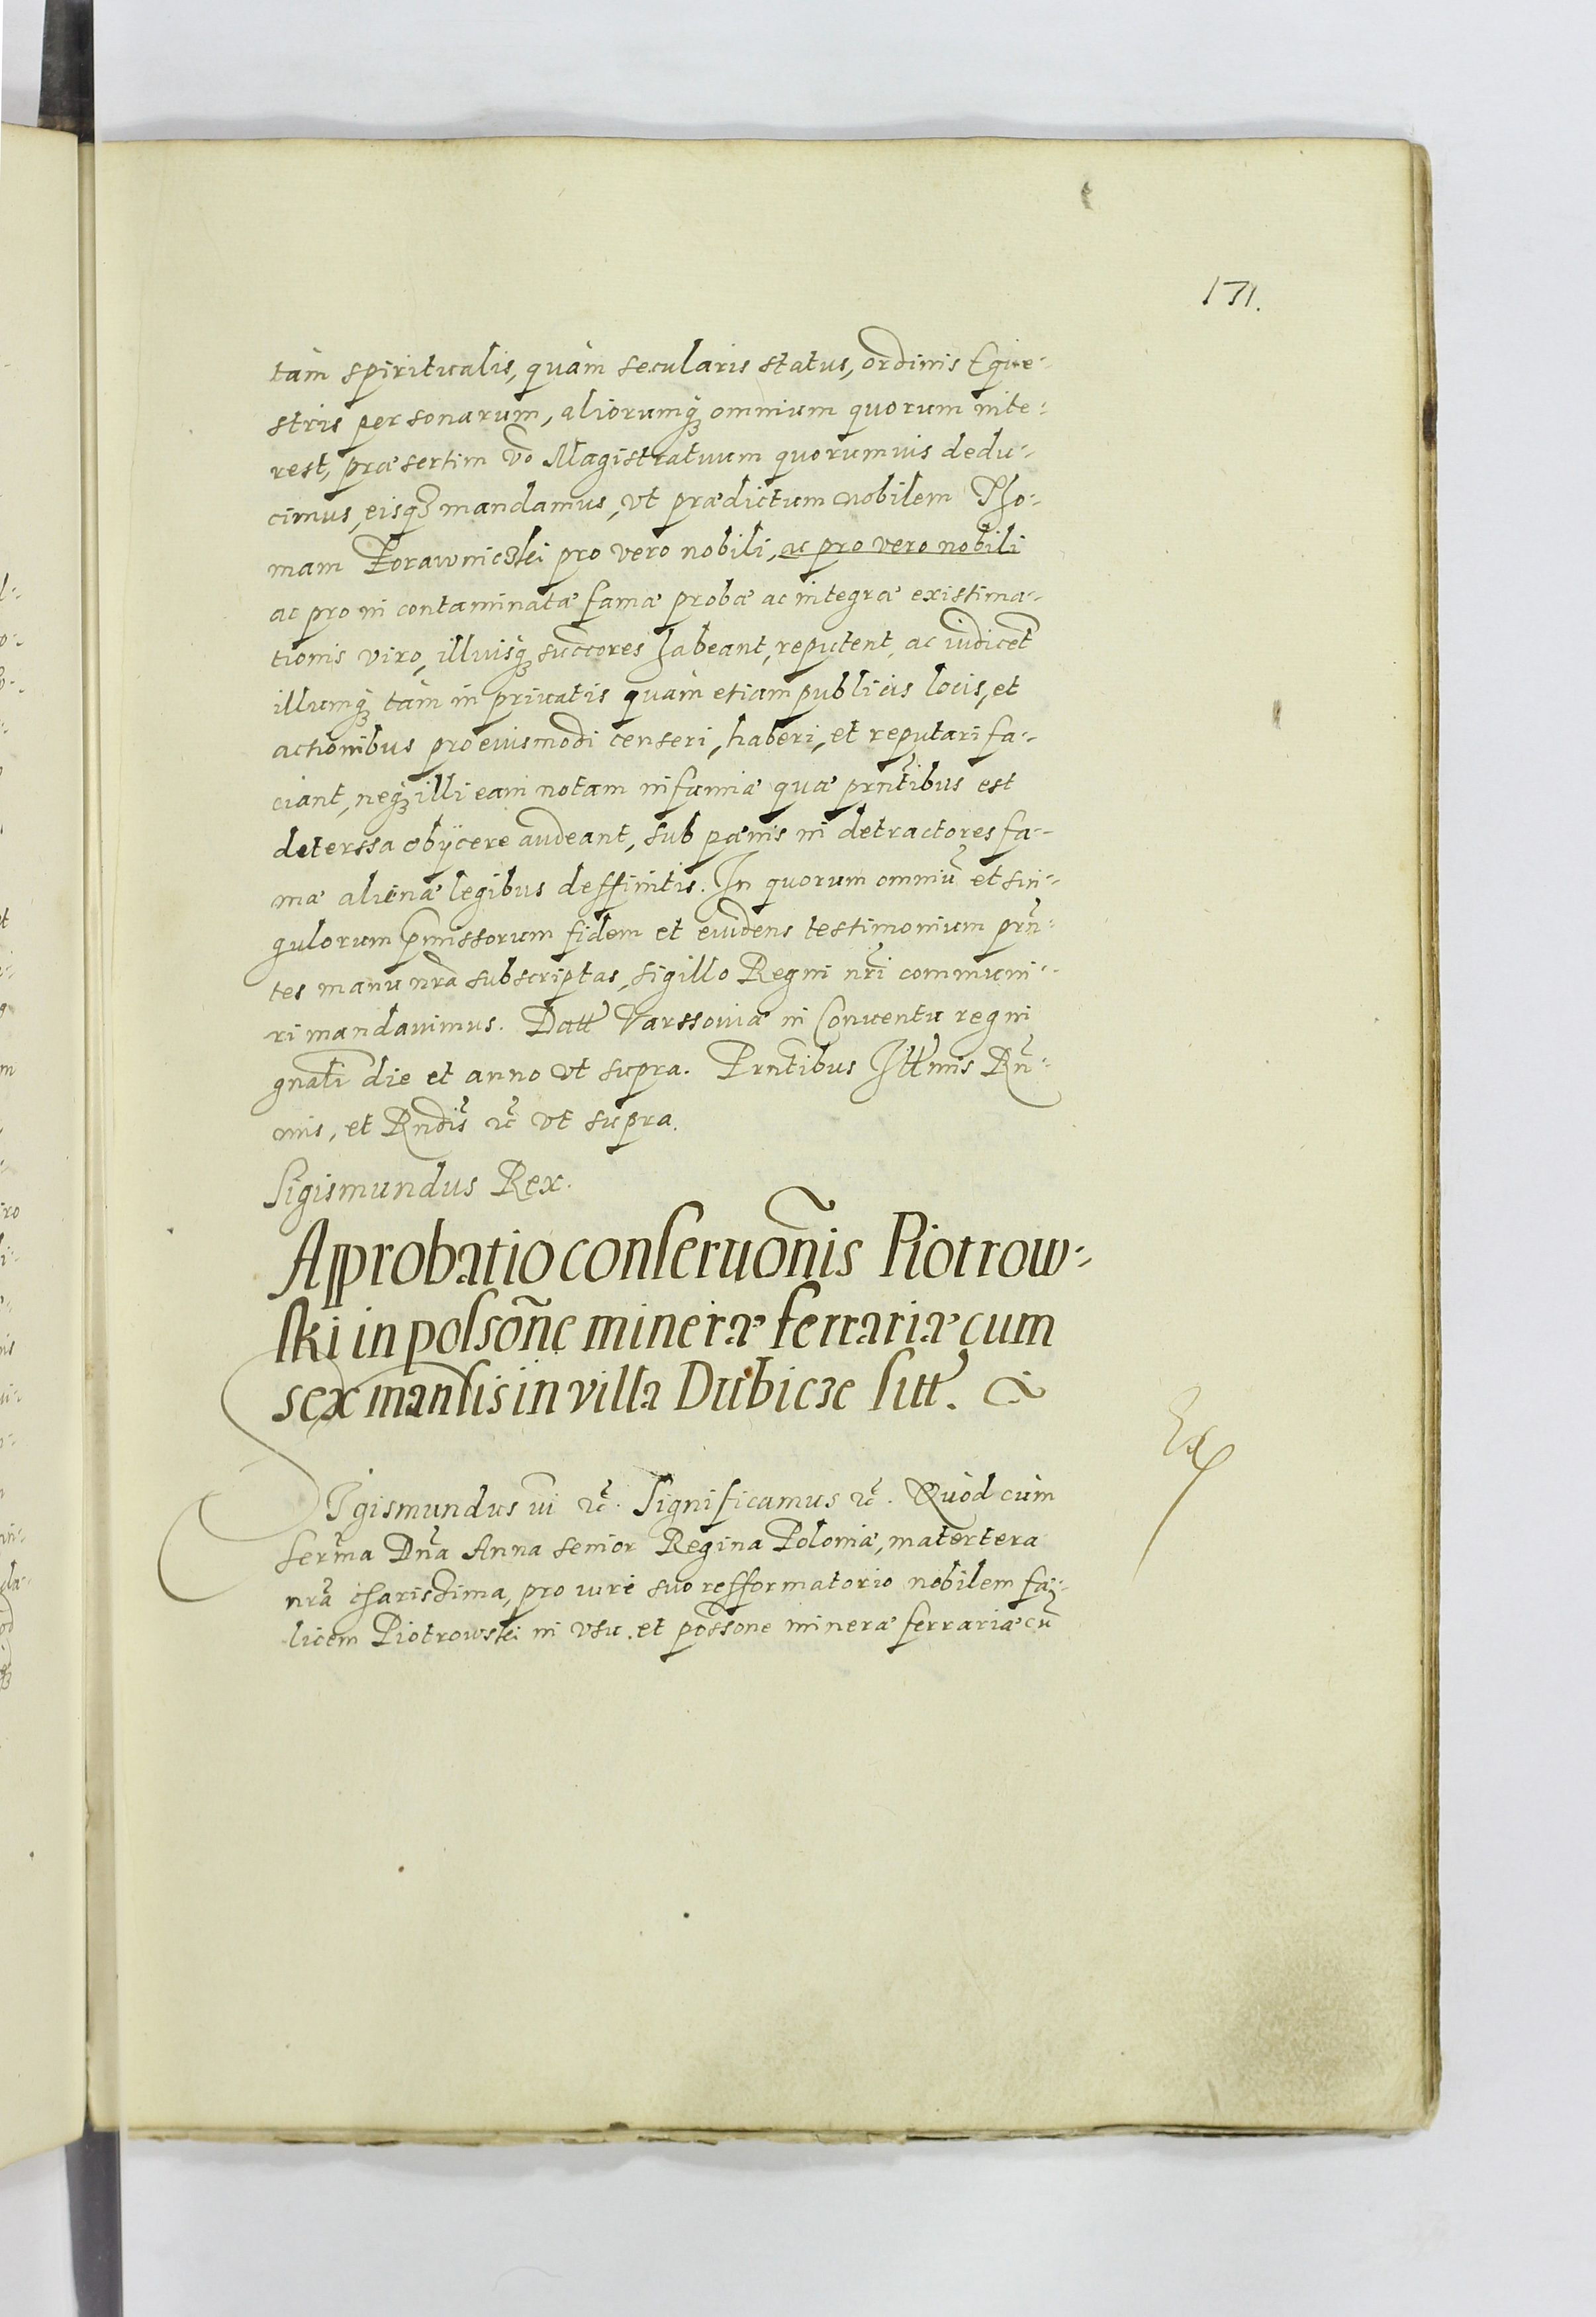 171.
tàm spiritualis, quàm secularis status, ordinis Eque-
stris personarum, aliorumq₃ omnium quorum inte-
rest, præsertim v̄o Magistratuum quorumuis dedu-
cimus, eisq₃ mandamus, vt prædictum nobilem Tho-
mam Porawniczki pro vero nobili, ac pro vero nobili
ac pro incontaminatæ famæ probæ ac integræ existima-
tionis viro, illiusq₃ succ̄ores habeant, reputent, ac iudicēt
illumq₃ tàm in priuatis quàm etiam publicis locis, et
actionibus pro eiusmodi censeri, haberi, et reputari fa-
ciant, neq₃ illi eam notam infamiæ quæ prn̄tibus est
deterssa obÿcere audeant, sub pœnis in detractores fa-
mæ alienæ legibus deffinitis. In quorum omniū et sin-
gulorum p̄missorum fidem et euidens testimonium prn̄-
tes manu nr̄a subscriptas, sigillo Regni nr̄i communi-
ri mandauimus. Datt Varssouiæ in Conuentu regni
gnāli die et anno vt supra. Prn̄tibus Illmis Rn̄-
mis, et Rndis̄ ꝛc̄ vt supra.
Sigismundus Rex.
Approbatio conseruōnis Piotrow-
ski in possōne mineræ ferrariæ cum
sex mansis in villa Dubicze sitt.
Sigismundus iii ꝛc̄. Significamus ꝛc̄. Quòd cùm
Serm̄a Dn̄a Anna senior Regina Poloniæ, matertera
nr̄a charissima, pro iure suo refformatorio nobilem fæ-
licem Piotrowski in vsu et pōssone mineræ ferrariæ cū